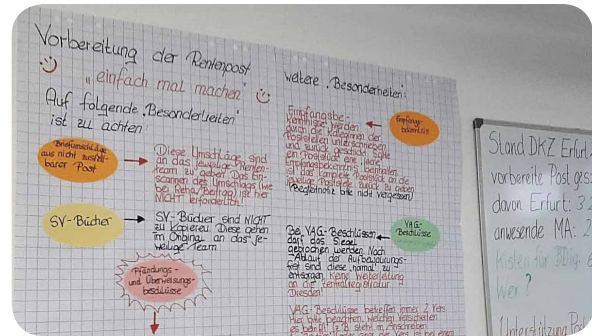 Vorbereitung der Rentenpost
"einfach mal machen"
Auf folgende "Besonderheiten"
ist zu achten:
Briefumschläge
aus nicht zustell-
barer Post
Diese Umschläge sind
an das jeweilige Renten-
team zu geben. Das Ein-
scannen des Umschlags (wie
bei Reha/Beitrag) ist hier
NICHT erforderlich!
SV-Bücher
SV-Bücher sind NICHT
zu kopieren! Diese gehen
im Original an das je-
weilige Team
Pfändungs-
und Überweisungs-
beschlüsse
weitere "Besonderheiten":
Empfangsbe-
kenntnis
Empfangsbe-
kenntnisse werden
durch die
Poststellen unterschrieben
und zurück geschickt. Sollte
ein Poststück eine
Empfangsbekenntnis beinhalten,
ist das komplette Poststück an die
Poststelle zurück zu geben
(Begleitnotiz bitte nicht vergessen)
VAG-
Beschlüsse
Bei VAG-Beschlüssen
darf das Siegel
gebrochen werden. Nach
Ablauf der Aufbewahrungs-
frist sind diese "normal" zu
entsorgen. Keine Weiterleitung
an die Zentralregistratur
Dresden!
VAG-Beschlüsse betreffen immer 2 Vers.
Hier bitte beachten, welchen Versicherten
es betrifft (z.B. steht im Anschreiben
Stand DKZ Erfurt
vorbereitete Post ges
davon Erfurt: 3.2
anwesende MA: 2
Kisten für
Wer?
Unterstützung Post